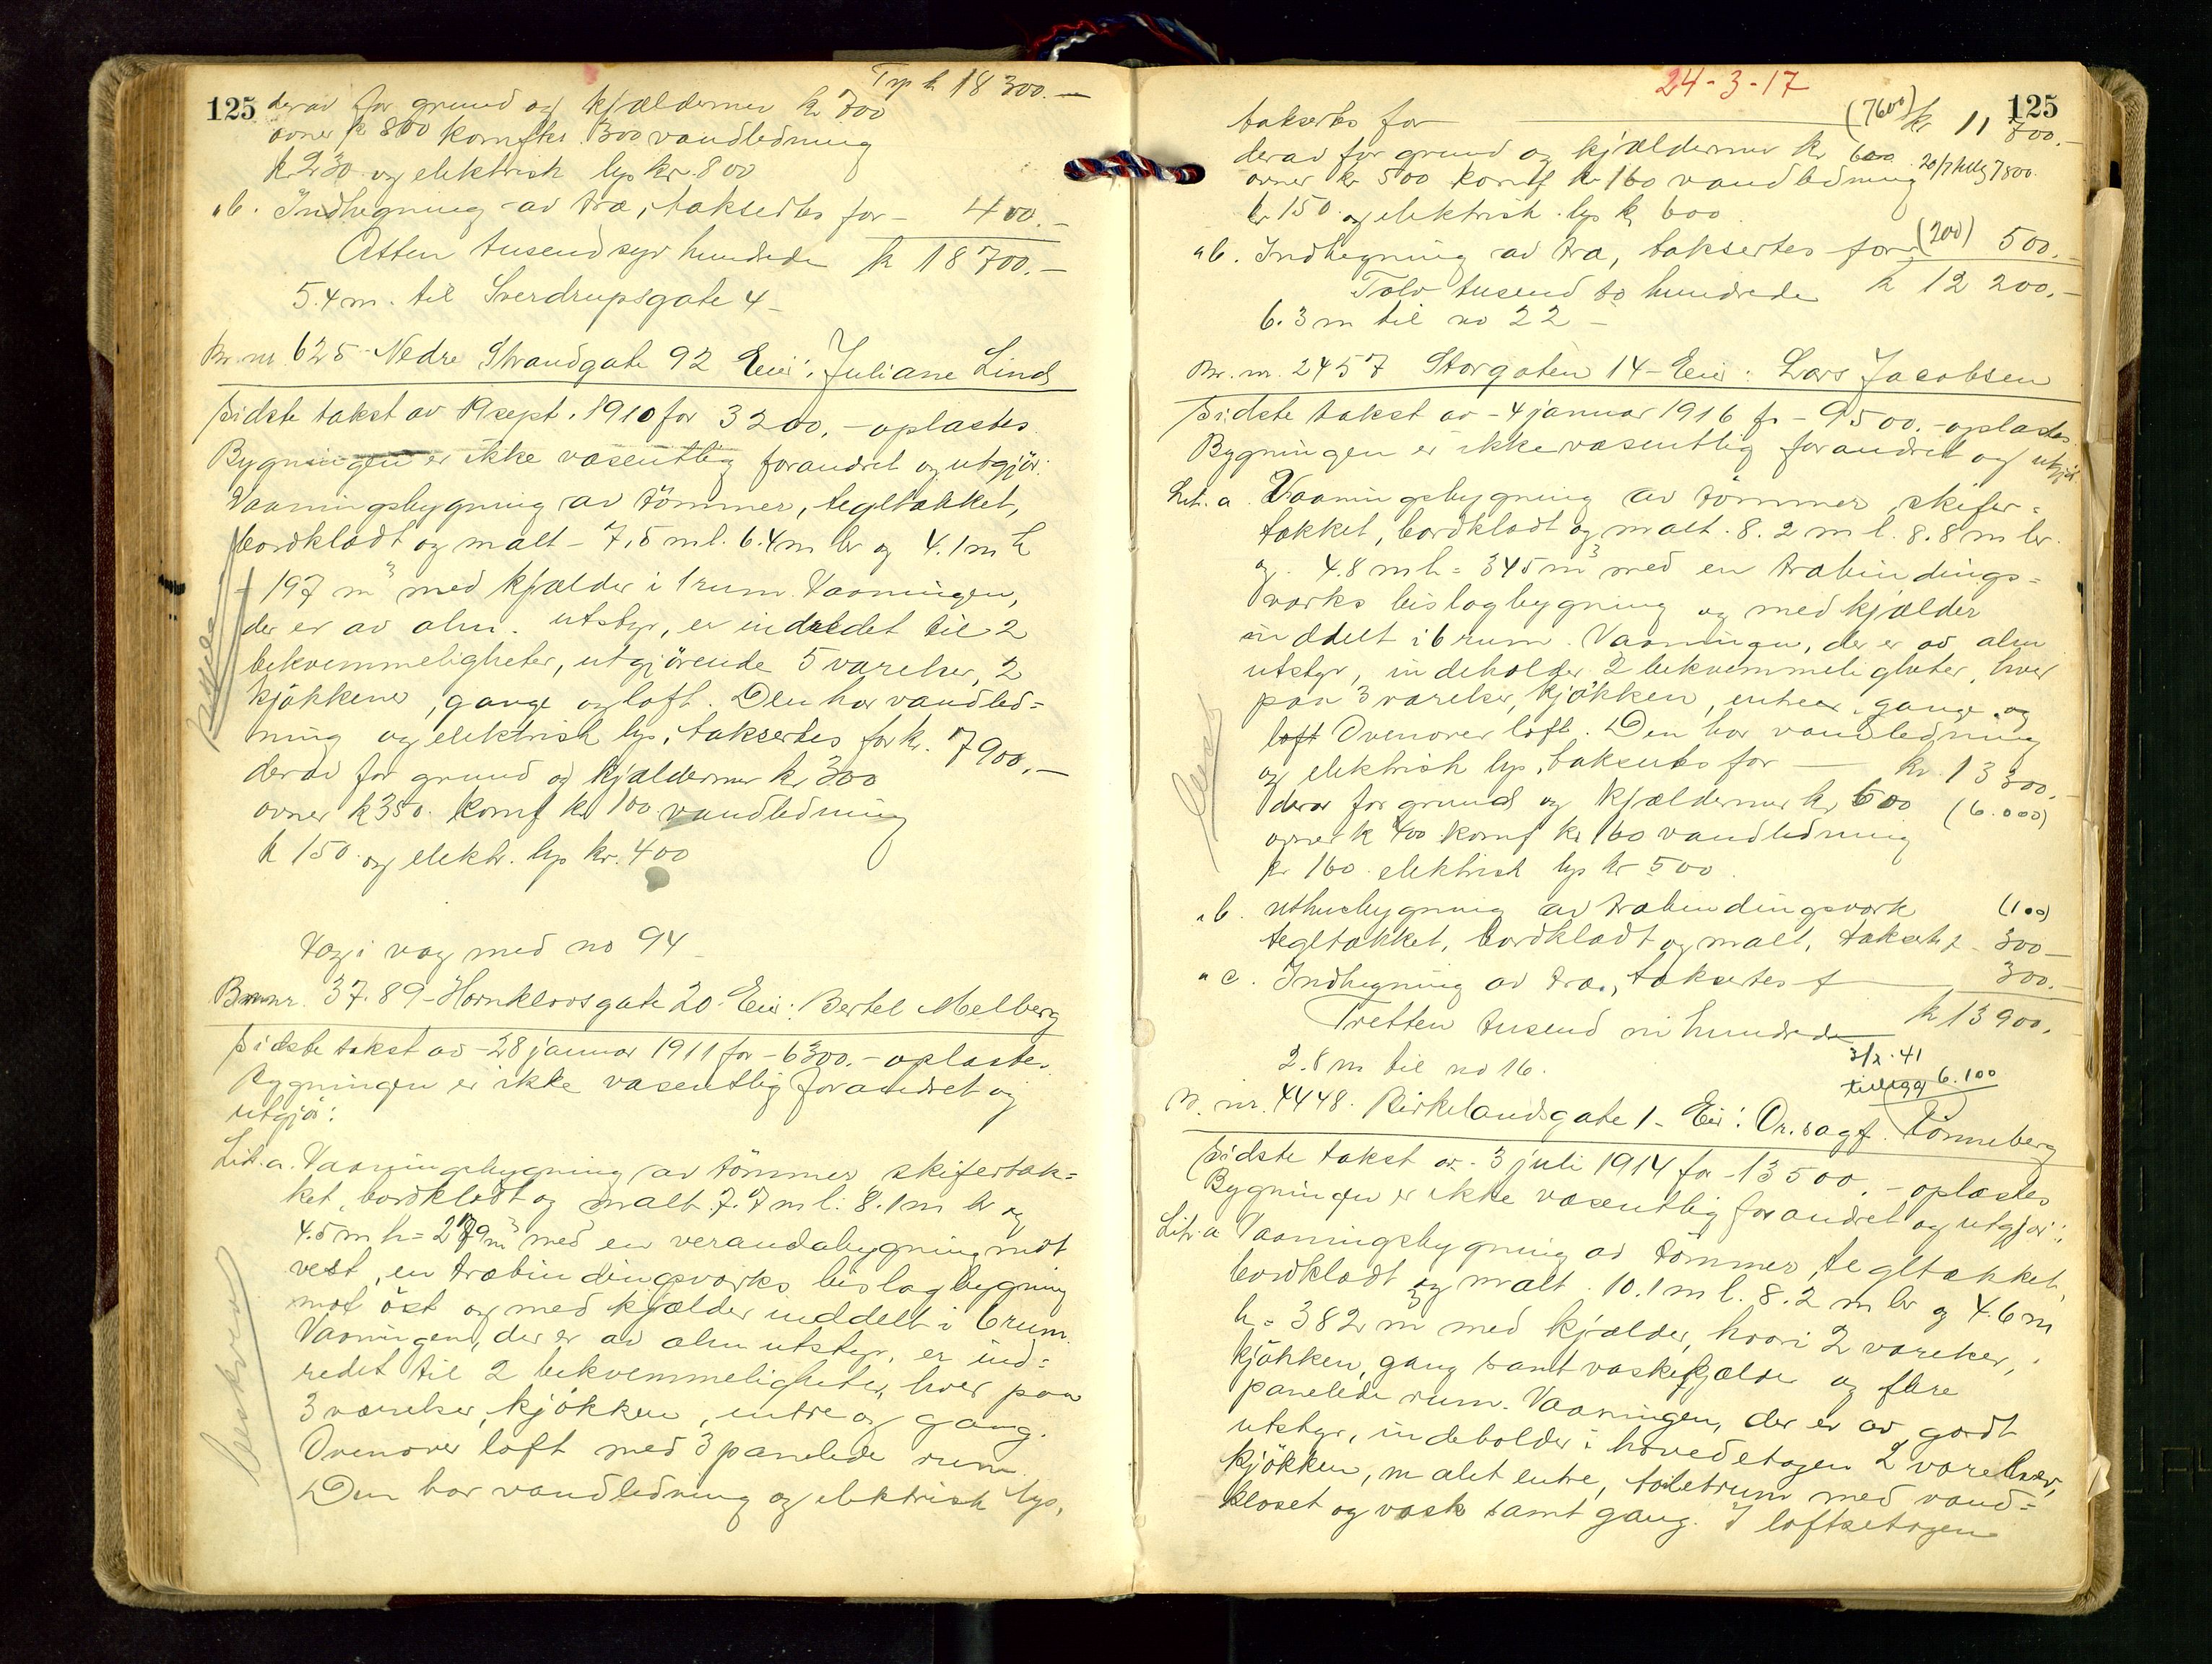 Trp k 18300.—
125 derav for grund og kjældermur kr 700
ovner kr 800 komf kr. 300 vandledning
kr 230 og elektrisk lys kr. 800
" b. Indhegning av træ, taksertes for — 400.—
Atten tusend syv hundrede kr 18700.—
5.4 m. til Sverdrupsgate 4 —
Br. nr. 625 Nedre Strandgate 92 Eier: Juliane Lind
Sidste takst av 19 sept. 1910 for 3200.— oplæstes.
Bygningen er ikke væsentlig forandret og utgjör:
Vaaningsbygning av tömmer, tegltækket,
bordklædt og malt — 7,5 m l. 6.4 m br og 4.1 m h
= 197 m³ med kjælder i 1 rum. Vaaningen,
der er av alm. utstyr, er indredet til 2
bekvemmeligheter, utgjörende 5 værelser, 2
kjökkener, gange og loft. Den har vandled=
ning og elektrisk lys, taksertes for kr. 7900,—
derav for grund og kjældermur kr 300
ovner kr 350. komf kr 100 vandledning
kr 150. og elektr. lys kr. 400
Væg i væg med no 94 —
Br nr. 3789 — Hornklovsgate 20. Eier: Bertel Melberg
Sidste takst av — 28 januar 1911 for — 6300.— oplæstes.
Bygningen er ikke væsentlig forandret og
utgjör:
Lit. a. Vaaningsbygning av tömmer, skifertæk=
ket, bordklædt og malt. 7.7 m l. 8.1 m br og
4.5 m h = 279 m³ med en verandabygning mot
vest, en træbindingsverks bislagbygning
mot öst og med kjælder inddelt i 6 rum.
Vaaningen, der er av alm utstyr, er ind=
redet til 2 bekvemmeligheter, hver paa
3 værelser, kjökken, entre og gang.
Ovenover loft med 3 panelede rum.
Den har vandledning og elektrisk lys,
24-3-17
125
taksertes for — (7600) kr 11 700.—
derav for grund og kjældermur kr 600
ovner kr 500 komf kr 160 vandledning
kr 150. og elektrisk lys kr 600.
" b. Indhegning av træ, taksertes for (200) 500.—
Tolv tusend to hundrede kr 12 200.—
6.3 m til no 22 —
Br. nr. 2457 Storgaten 14 — Eier: Lars Jacobsen
Sidste takst av — 4 januar 1916 fr — 9500.— oplæstes.
Bygningen er ikke væsentlig forandret og utgjör:
Lit. a. Vaaningsbygning av tömmer, skifer=
tækket, bordklædt og malt. 8.2 m l. 8.8 m br.
og 4.8 m h = 345 m³ med en træbindings=
verks bislagbygning og med kjælder
inddelt i 6 rum. Vaaningen, der er av alm
utstyr, indeholder 2 bekvemmeligheter, hver
paa 3 værelser, kjökken, entree, gange og
loft Ovenover loft. Den har vandledning
og elektrisk lys, taksertes for — kr. 13 300.—
derav for grund og kjældermur kr 600 (6.000)
ovner kr 400 komf kr 160 vandledning
kr 160. elektrisk lys kr 500.
" b. uthusbygning av træbindingsverk (100)
tegltækket, bordklædt og malt, taksertes f — 300 —
" c. Indhegning av træ, taksertes f — 300.—
Tretten tusend ni hundrede — kr 13900.—
2.8 m til no 16.
3/2.41
tillegg 6.100
Br. nr. 4448. Kirkelandsgate 1 — Eier: Or. sagf. Rönneberg
Sidste takst av — 3 juli 1914 for — 13500.— oplæstes
Bygningen er ikke væsentlig forandret og utgjör:
Lit. a Vaaningsbygning av tömmer, tegltækket,
bordklædt og malt. 10.1 m l. 8.2 m br og 4.6 m
h = 382 m³ med kjælder, hvori 2 værelser,
kjökken, gang samt vaskekjælder og flere
panelede rum. Vaaningen, der er av godt
utstyr, indeholder i hovedetagen 2 værelser,
kjökken, malet entre, toiletrum med vand=
kloset og vask samt gang. I loftsetagen